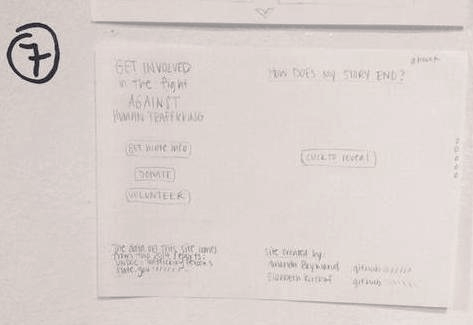 7
GET INVOLVED
in the fight
AGAINST
HUMAN TRAFFICKING
get more info
DONATE
VOLUNTEER
The data on this site comes
from the 2014 reports:
state.gov
HOW DOES MY STORY END?
click to reveal
site created by:
Amanda github
Elizabeth github